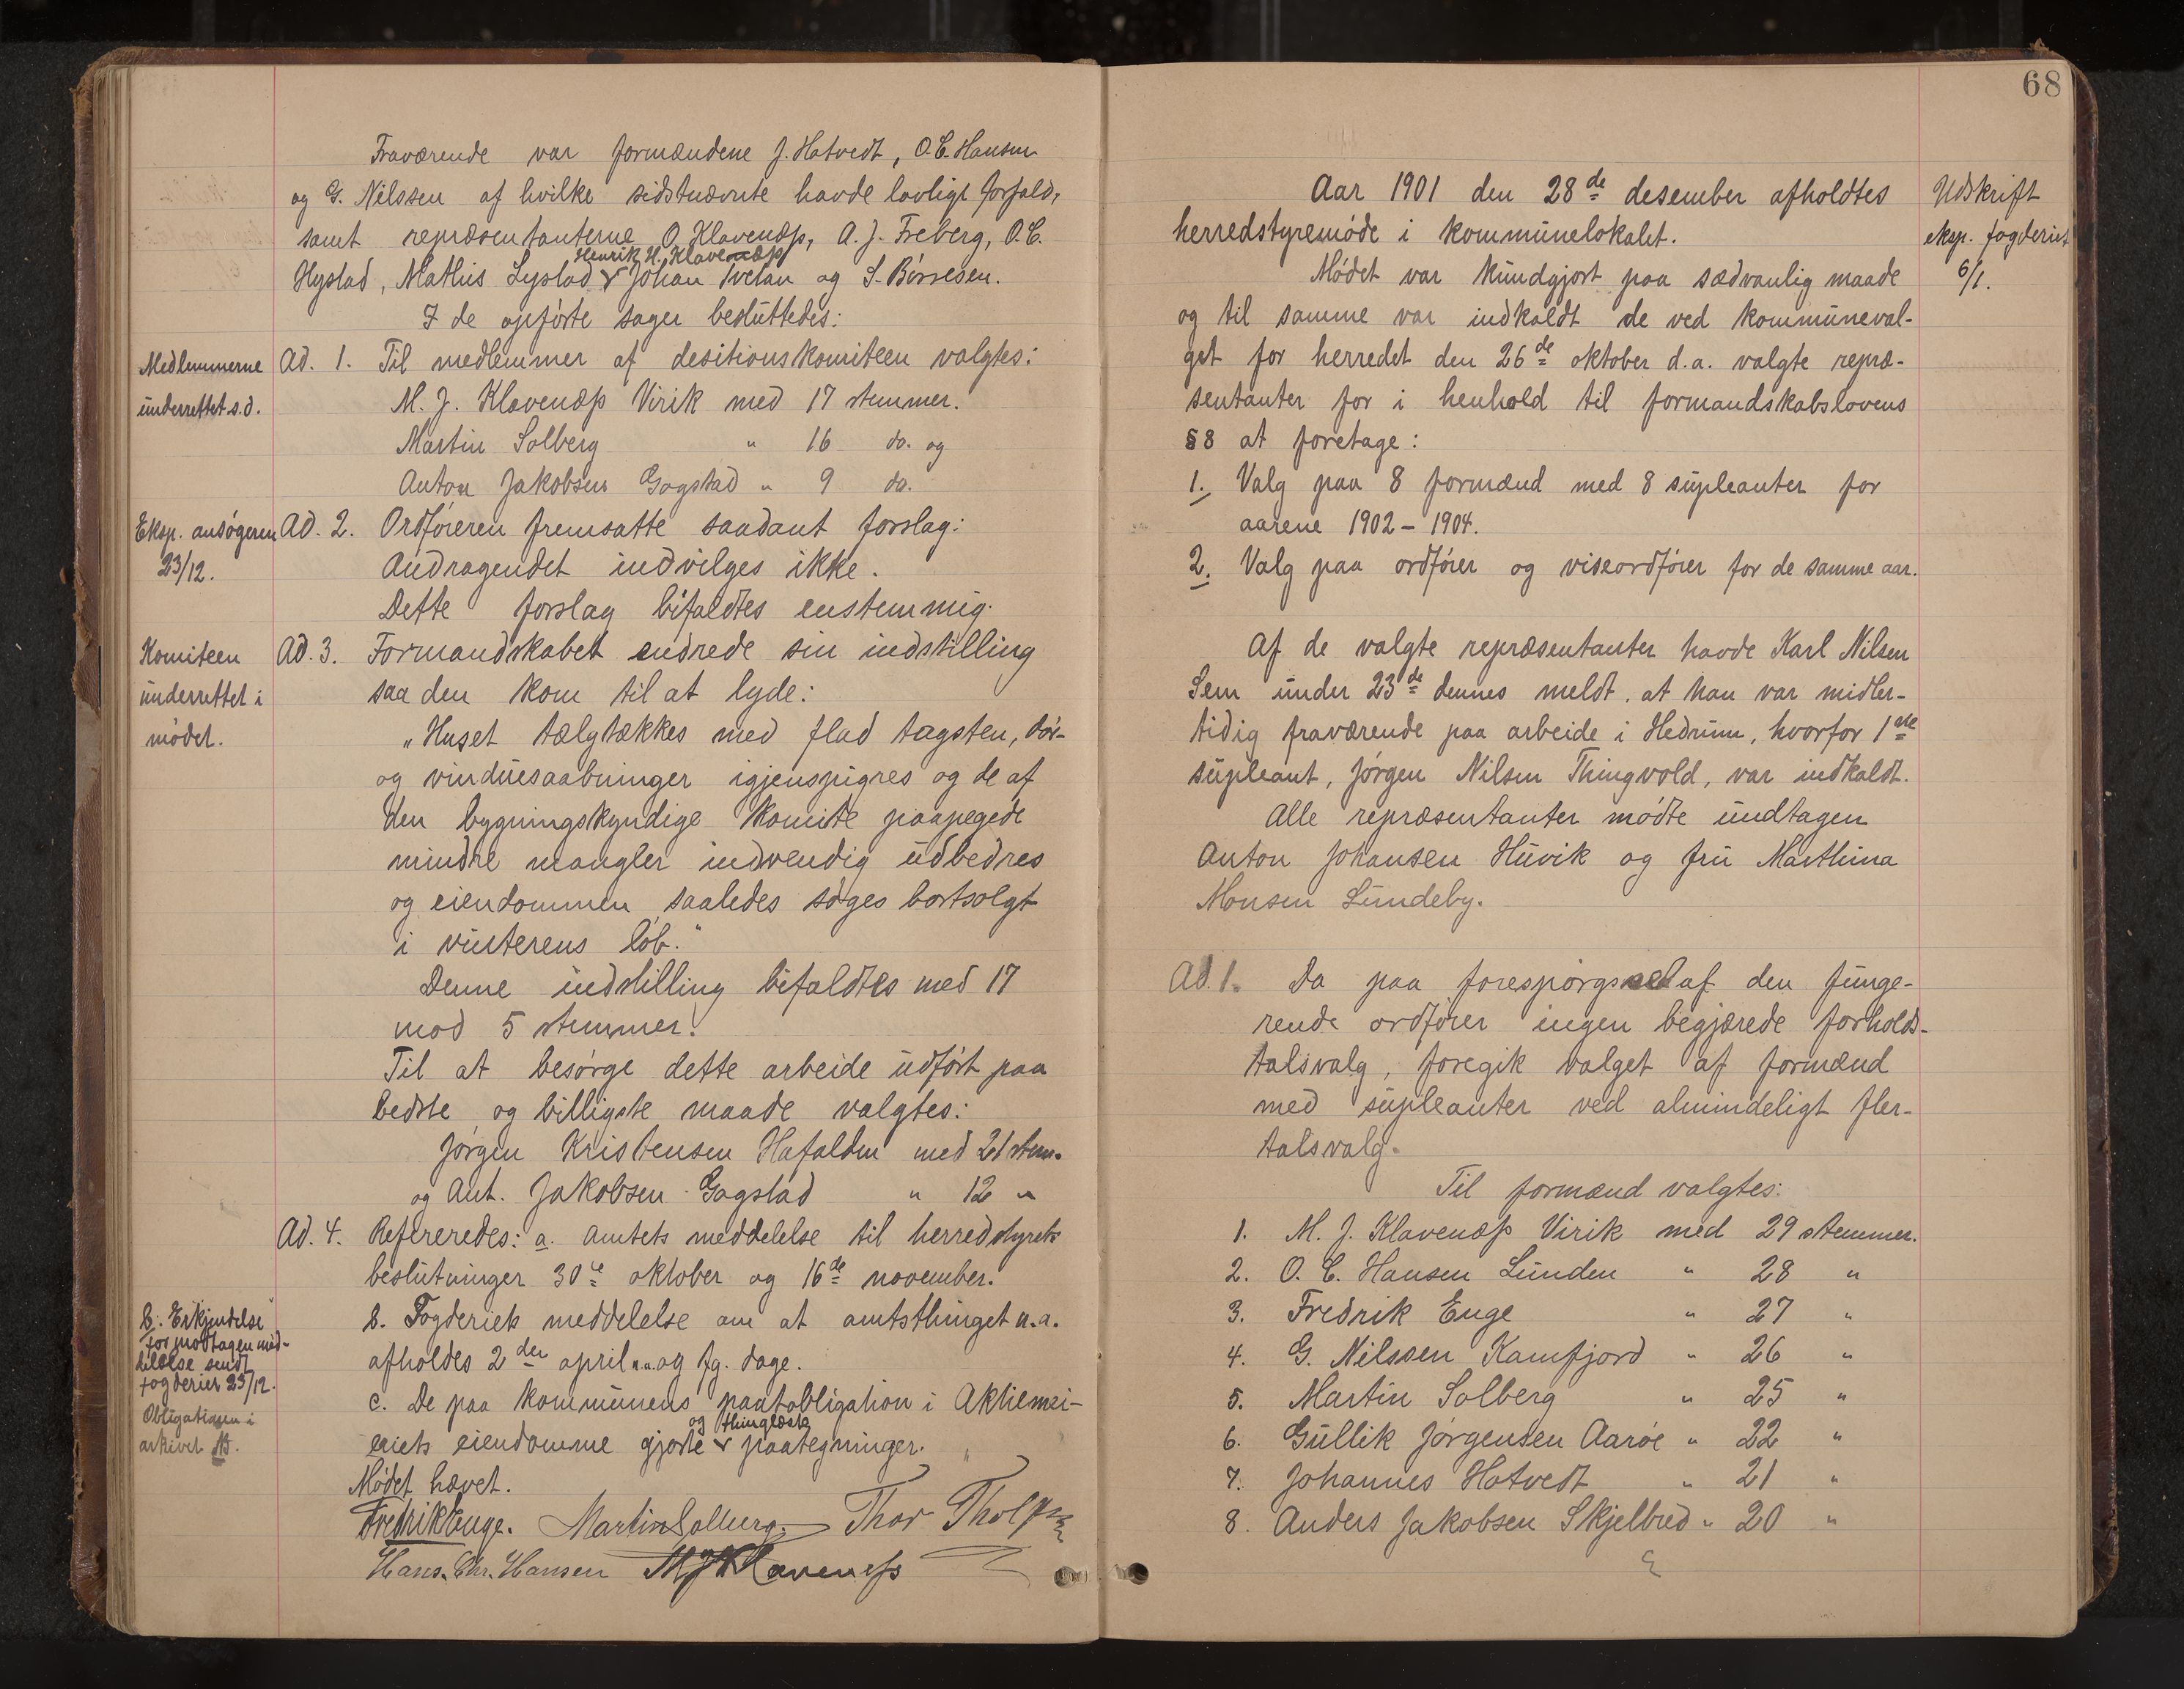 Fraværende var formændene J. Hotvedt, O.C. Hansen
og G. Nilssen af hvilke sidstnævnte havde lovligt forfald,
samt repræsentanterne O. Klavenæss, A. J. Freberg, O.C.
Henrik H. Klavenæss
Hystad, Mathis Lystad Johan Tvetan og S. Børresen.
I de opførte sager besluttedes:
Medlemmerne
underrettet s.d.
Ad. 1. Til medlemmer af desitionskomiteen valgtes:
M. J. Klavenæss Virik med 17 stemmer.
Martin Solberg " 16 do. og
Anton Jakobsen Gogstad " 9 do.
Eksp. ansøgeren
23/12.
Ad. 2. Ordføreren fremsatte saadant forslag:
Andragendet indvilges ikke.
Dette forslag bifaldtes enstemmig.
Komiteen
underrettet i
mødet.
Ad. 3. Formandskabet endrede sin indstilling
saa den kom til at lyde:
"Huset tælgtækkes med flad tagsten, dør-
og vinduesaabninger igjenspigres og de af
den bygningskyndige komite paapegede
mindre mangler indvendig udbedres
og eiendommen saaledes søges bortsolgt
i vinterens løb."
Denne indstilling bifaldtes med 17
mod 5 stemmer.
Til at besørge dette arbeide udført paa
bedste og billigste maade valgtes:
Jørgen Kristensen Hafalden med 21 stem.
og Ant. Jakobsen Gogstad " 12 "
Ad. 4. Refereredes: a. Amtets meddelelse til herredstyrets
beslutninger 30te oktober og 16de november.
b. Erkjendelse
for modtagen med-
delelse sendt
fogderiet 23/12.
Obligationen i
arkivet
b. Fogderiets meddelelse om at amtsthinget n.a.
afholdes 2den april og fg. dage.
c. De paa kommunens pantobligation i Aktiemei-
og thinglæste
eriets eiendomme gjorte paategninger.
Mødet hævet.
Fredrik Enge. Martin Solberg. Thor
Hans. Chr. Hansen MJKlaveness
68
Udskrift
eksp. fogderiet
6/1.
Aar 1901 den 28de desember afholdtes
herredstyremøde i kommunelokalet.
Mødet var kundgjort paa sædvanlig maade
og til samme var indkaldt de ved kommuneval-
get for herredet den 26de oktober d.a. valgte repræ-
sentanter for i henhold til formandskabslovens
§ 8 at foretage:
1. Valg paa 8 formænd med 8 supleanter for
aarene 1902 – 1904.
2. Valg paa ordfører og viseordfører for de samme aar.
Af de valgte repræsentanter havde Karl Nilsen
Sem under 23de dennes meldt, at han var midler-
tidig fraværende paa arbeide i Hedrum, hvorfor 1ste
supleant, Jørgen Nilsen Thingvold, var indkaldt.
Alle repræsentanter mødte undtagen
Anton Johansen Huvik og fru Marthina
Monsen Lundeby.
Ad. 1. Da paa forespørgsel af den funge-
rende ordfører ingen begjærede forholds-
talsvalg, foregik valget af formænd
med supleanter ved almindeligt fler-
talsvalg.
Til formænd valgtes:
1. M. J. Klavenæss Virik med 29 stemmer.
2. O. C. Hansen Lunden " 28 "
3. Fredrik Enge " 27 "
4. G. Nilssen Kamfjord " 26 "
5. Martin Solberg " 25 "
6. Gullik Jørgensen Aarøe " 22 "
7. Johannes Hotvedt " 21 "
8. Anders Jakobsen Skjelbred " 20 "